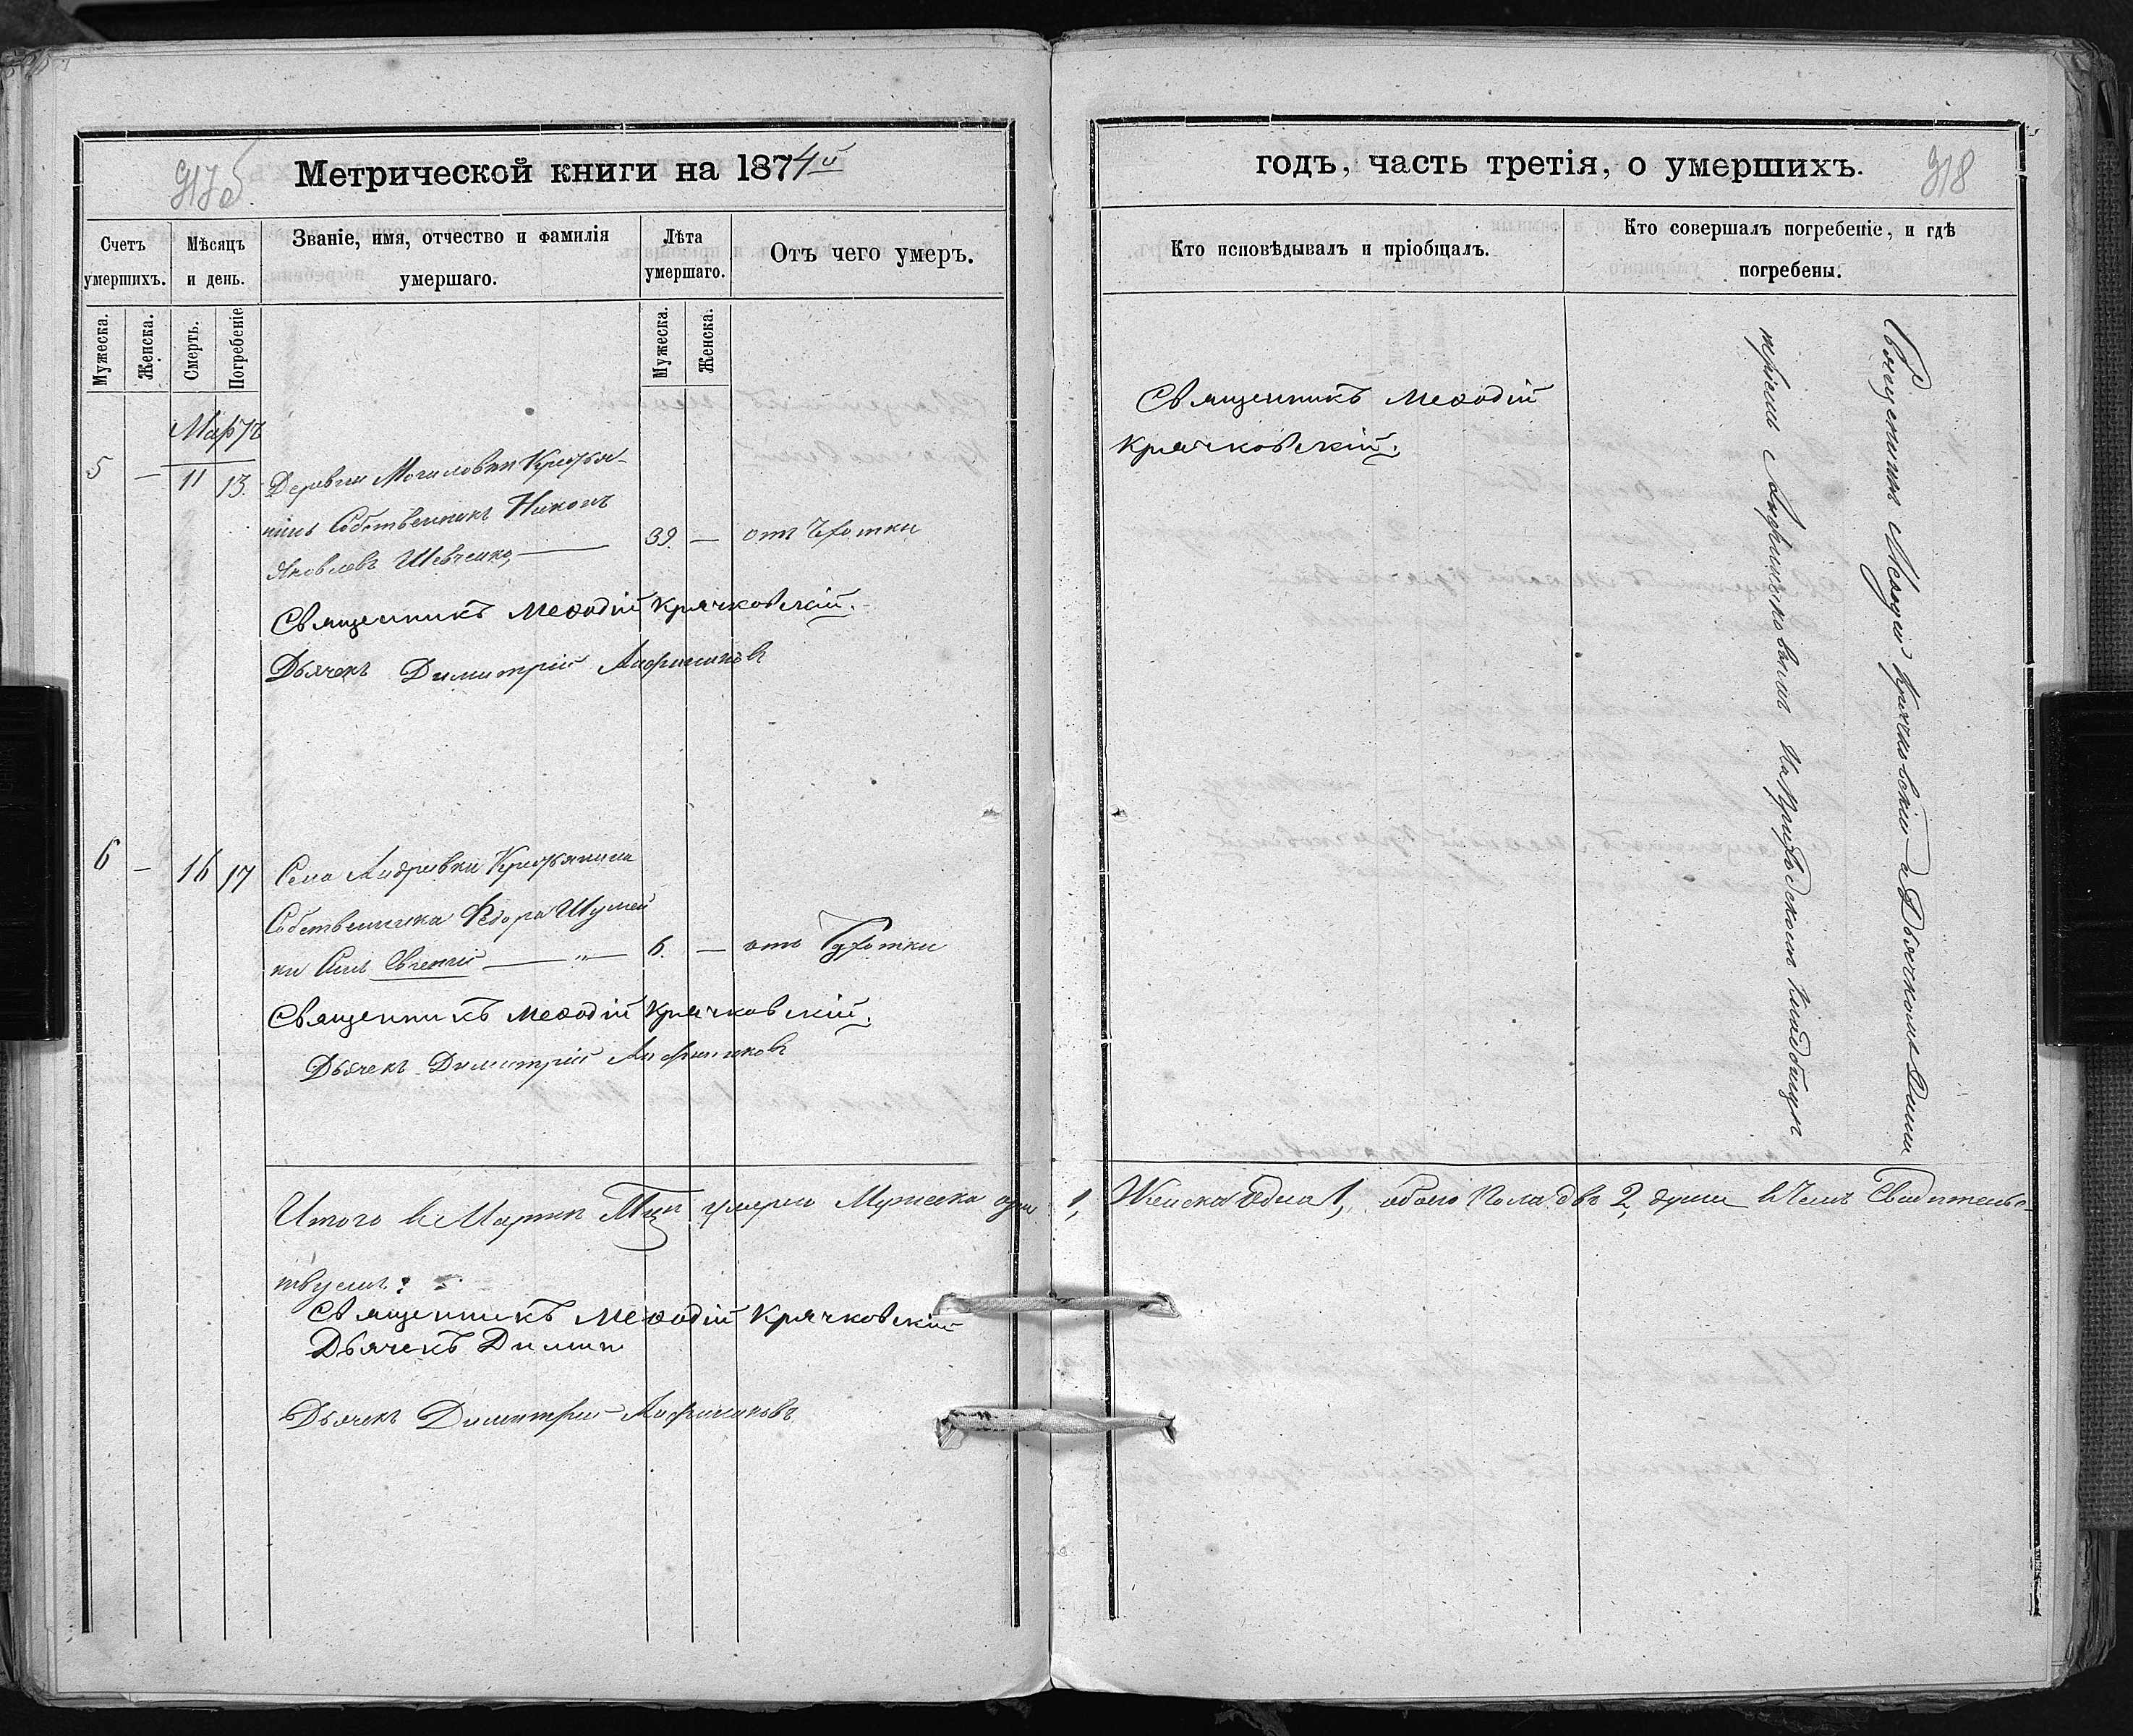 Метрической книги на 1874й
Счетъ умершихъ.
Мѣсяцъ и день.
Званіе, имя, отчество и фамилія умершаго.
Лѣта умершаго.
Отъ чего умеръ.
Мужеска.
Женска.
Смерть.
Погребеніе
Мужеска.
Женска.
Мартъ
5 — 11 13. Деревни Могиловки Крестья-
нинъ Собственникъ Никонъ
Яковлевъ Шевченко, — 39. — отъ Чахотки
Священникъ Меѳодій Крячковскій.
Дьячекъ Димитрій
6 — 16 17 Села Андреевки Крестьянина
Собственника Ѳедора Шумей
ки Сынъ Евгеній — „ — 6. — отъ Чахотки
Священникъ Меѳодій Крячковскій.
Дьячекъ Димитрій
Итого въ Мартѣ М-цѣ умерло Мужеска одинъ
ствуемъ:
Священникъ Меѳодій Крячковскій
Дьячекъ Дими
Дьячекъ Димитрій
годъ, часть третія, о умершихъ.
918
Кто исповѣдывалъ и пріобщалъ.
Кто совершалъ погребеніе, и гдѣ погребены.
Священникъ Меѳодій
Крячковскій.
Священникъ Меѳодій Крячковскій съ Дьячкомъ Дими
тріемъ На Приходскомъ кладбищѣ
1, Женска Одна 1, обоего Пола двѣ 2, души въ Чемъ Свидѣтельс-